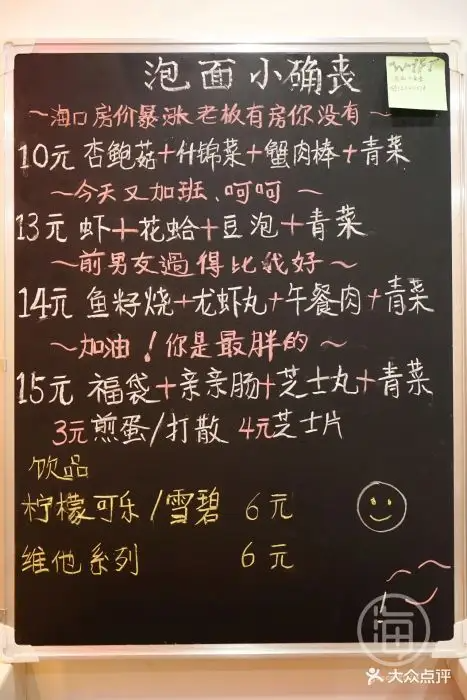 泡面小确丧
~海口房价暴涨 老板有房你没有~
10元 杏鲍菇+什锦菜+蟹肉棒+青菜
~今天又加班、呵呵~
13元 虾+花蛤+豆泡+青菜
~前男友過得比我好~
14元 鱼籽烧+龙虾丸+午餐肉+青菜
~加油!你是最胖的~
15元 福袋+亲亲肠+芝士丸+青菜
3元煎蛋/打散 4元芝士片
饮品
柠檬可乐/雪碧 6元
维他系列 6元
海
大众点评